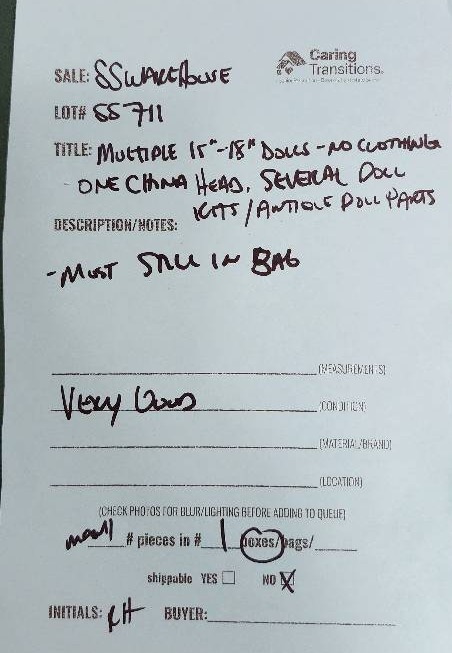 Caring
Transitions
SALE: SSWAREHOUSE
LOT# SS 711
TITLE: MULTIPLE 15"-18" DOLLS - NO CLOTHING
ONE CHINA HEAD, SEVERAL DOLL
KITS / ANTIQUE DOLL PARTS
DESCRIPTION/NOTES:
- MOST STILL IN BAG
(MEASUREMENTS)
VERY GOOD (CONDITION)
(MATERIAL/BRAND)
(LOCATION)
(CHECK PHOTOS FOR BLUR/LIGHTING BEFORE ADDING TO QUEUE)
# pieces in # 1 boxes/bags/
shippable YES NO X
INITIALS: RH BUYER: